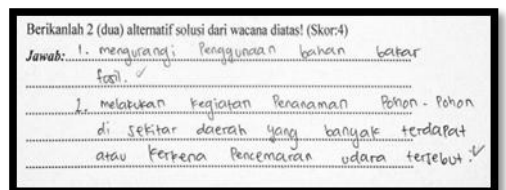 Berikanlah 2 (dua) alternatif solusi dari wacana diatas! (Skor:4)
Jawab: 1. mengurangi Penggunaan bahan bakar
fosil.
2. melakukan kegiatan Penanaman Pohon-Pohon
di sekitar daerah yang banyak terdapat
atau terkena Pencemaran udara tersebut.